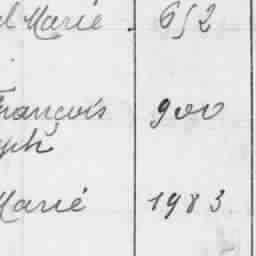 Marie 652
François 900
eph
Marie 1983